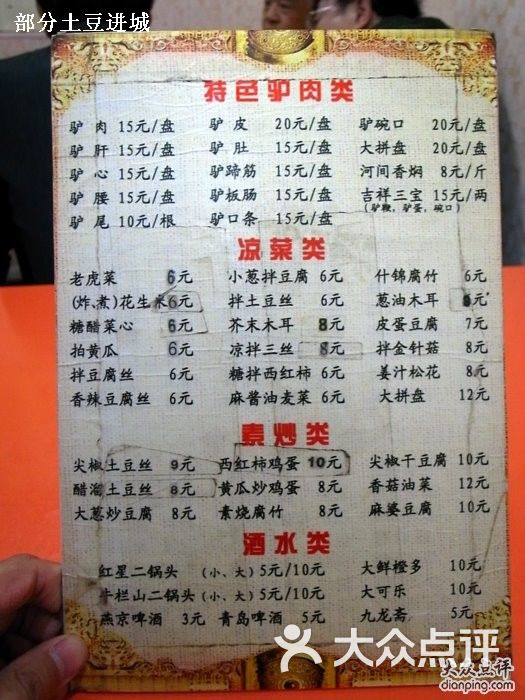 部分土豆进城
特色驴肉类
驴肉 15元/盘 驴皮 20元/盘 驴碗口 20元/盘
驴肝 15元/盘 驴肚 15元/盘 大拼盘 20元/盘
驴心 15元/盘 驴蹄筋 15元/盘 河间香焖 8元/斤
驴腰 15元/盘 驴板肠 15元/盘 吉祥三宝 15元/两
驴尾 10元/根 驴口条 15元/盘 (驴鞭,驴蛋,碗口)
凉菜类
老虎菜 6元 小葱拌豆腐 6元 什锦腐竹 6元
(炸.煮)花生米 6元 拌土豆丝 6元 葱油木耳 元
糖醋菜心 6元 芥末木耳 8元 皮蛋豆腐 7元
拍黄瓜 6元 凉拌三丝 8元 拌金针菇 8元
拌豆腐丝 6元 糖拌西红柿 6元 姜汁松花 8元
香辣豆腐丝 6元 麻酱油麦菜 6元 大拼盘 12元
素炒类
尖椒土豆丝 9元 西红柿鸡蛋 10元 尖椒干豆腐 10元
醋溜土豆丝 8元 黄瓜炒鸡蛋 8元 香菇油菜 12元
大葱炒豆腐 8元 素烧腐竹 8元 麻婆豆腐 10元
酒水类
红星二锅头 (小、大) 5元/10元 大鲜橙多 10元
牛栏山二锅头 (小、大) 5元/10元 大可乐 10元
燕京啤酒 3元 青岛啤酒 5元 九龙斋 5元
大众点评
大众点评
dianping.com